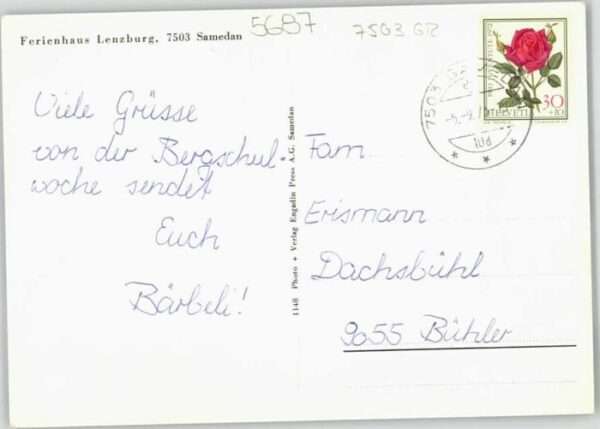 5687
7503 GR
Ferienhaus Lenzburg, 7503 Samedan
Viele Grüsse
von der Bergschul-
woche sendet
Euch
Bärbeli!
1148 Photo + Verlag Engadin Press A.G. Samedan
Fam
Erismann
Dachsbühl
9055 Bühler
HELVETIA
30
+10
7503